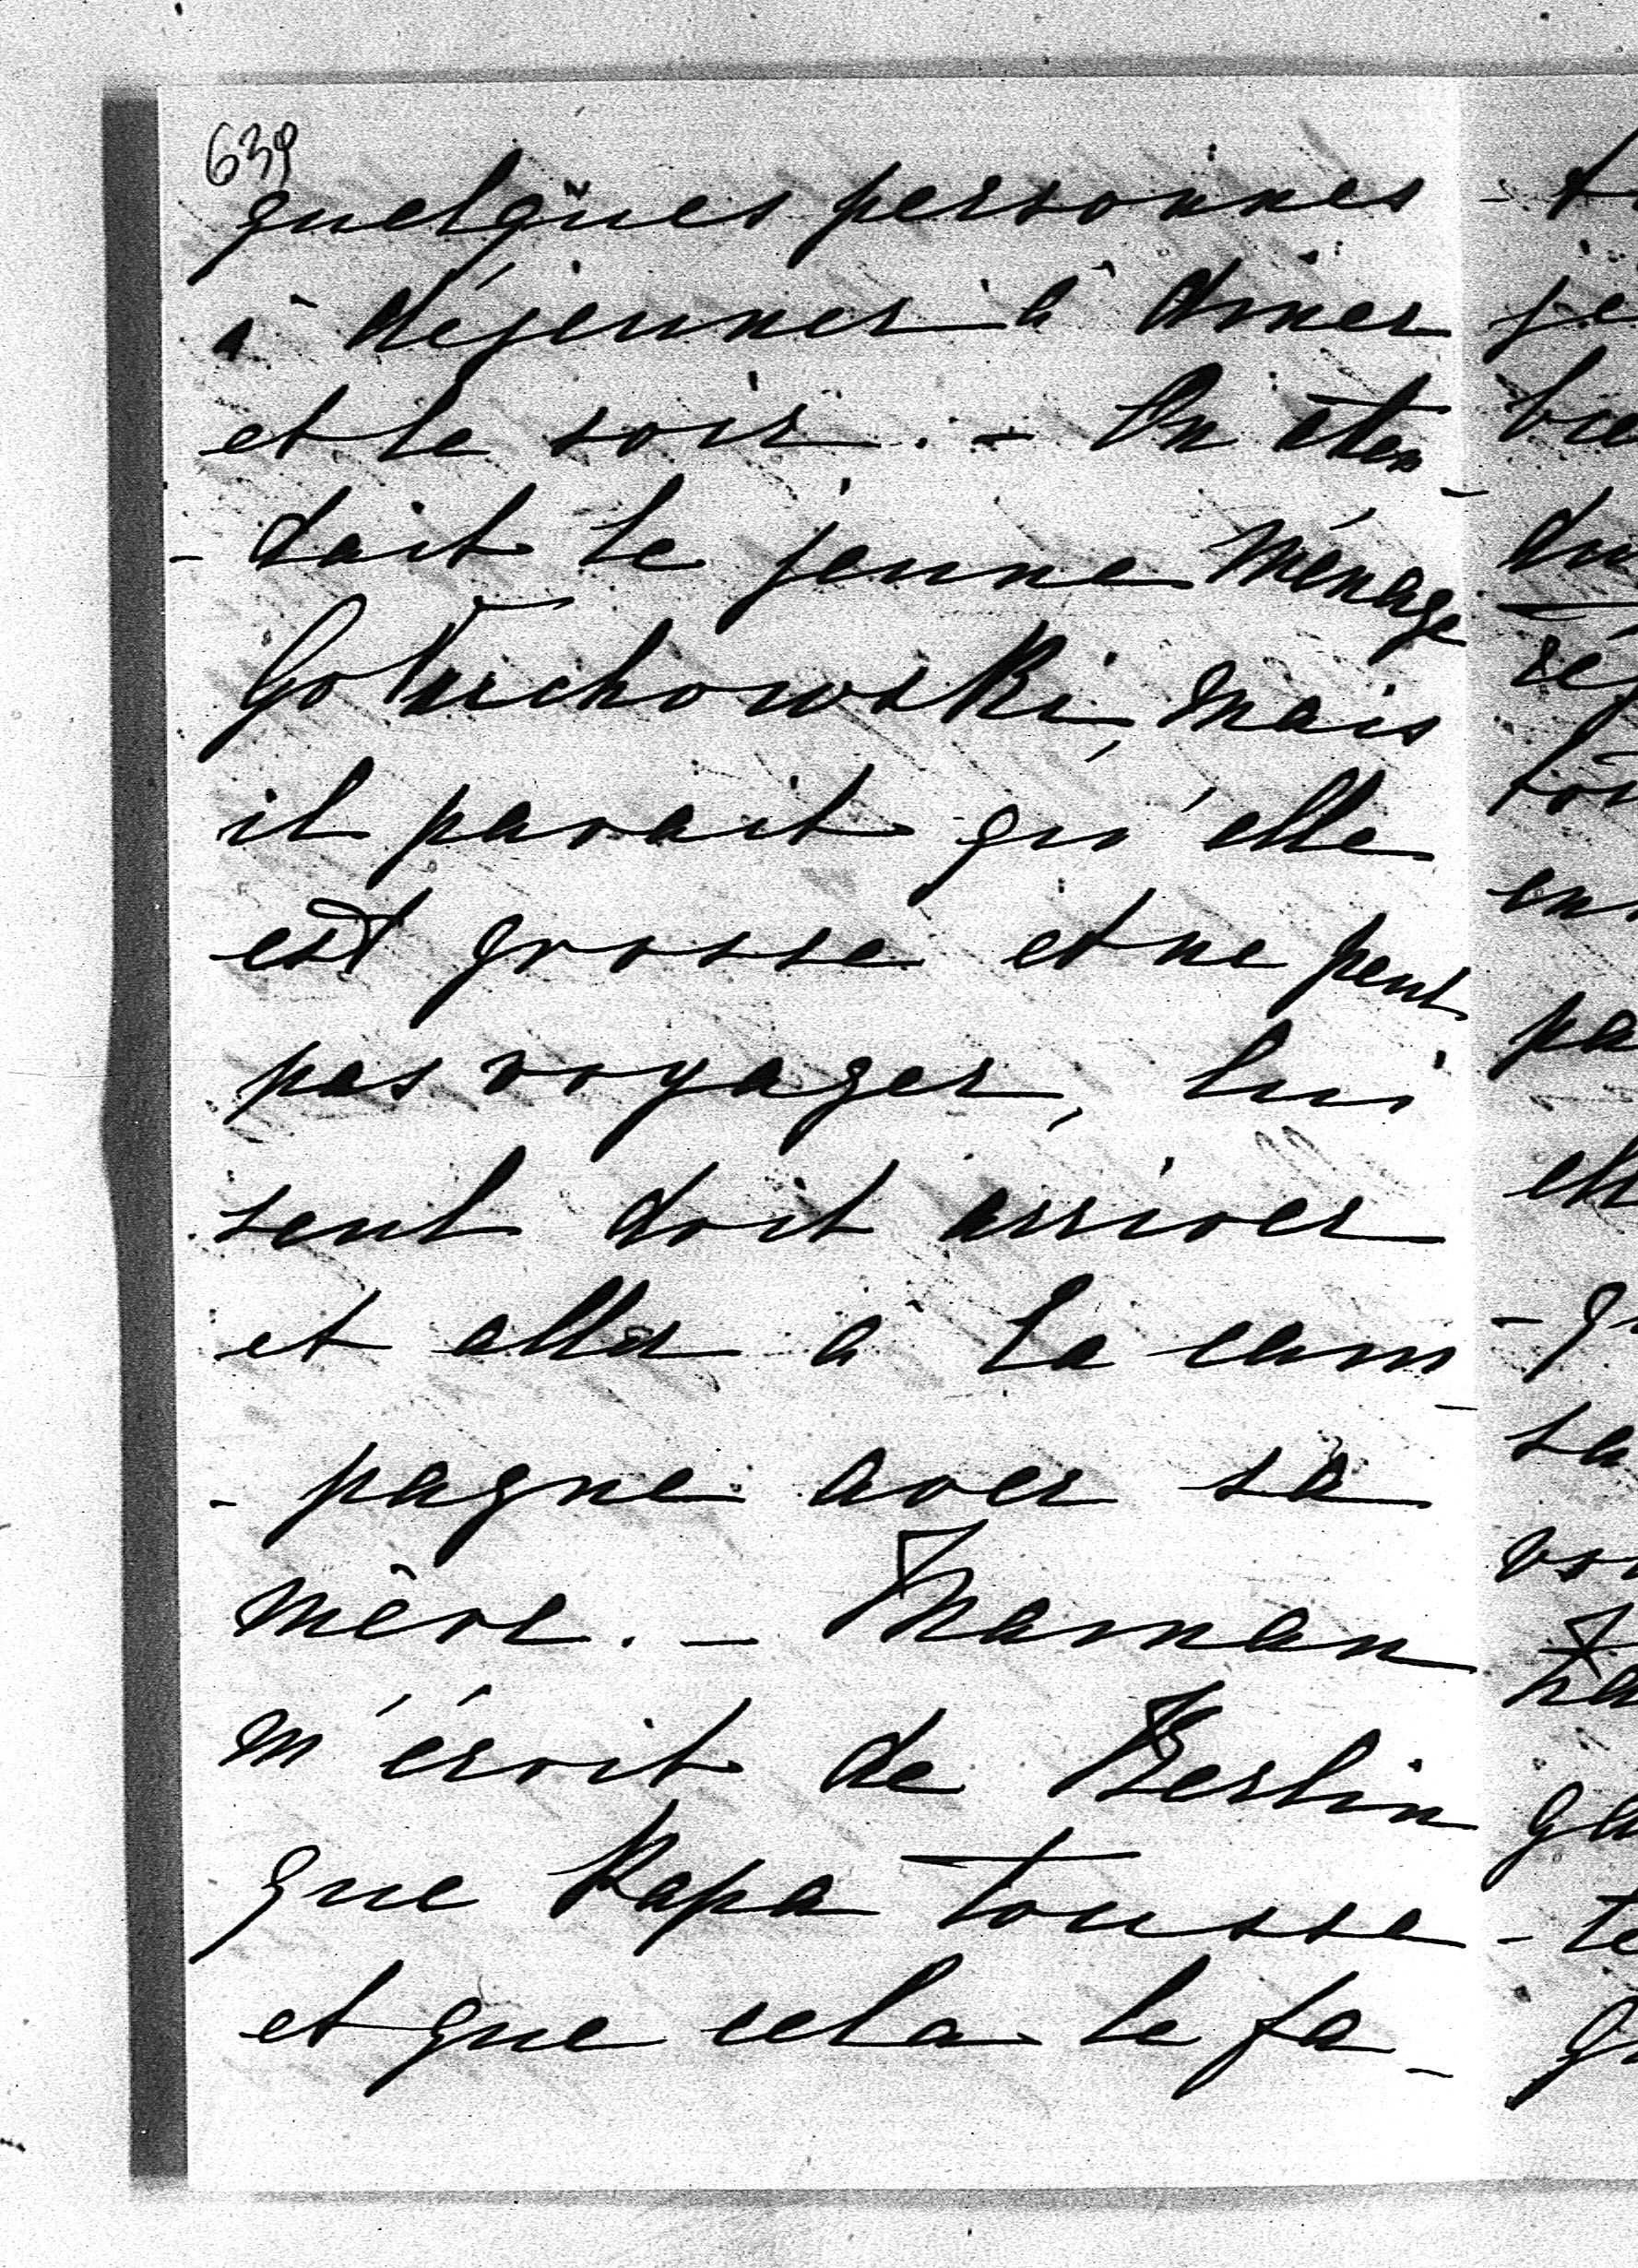 639
quelques personnes
à déjeuner à diner
et le soir. - On atten-
- dait le jeune ménage
Gołuchowski, mais
il parait qu'elle
est grosse et ne peut
pas voyager, lui
seul doit arriver
et aller à la cam-
- pagne avec sa
mère. - Maman
m'écrit de Berlin
que Papa tousse
et que cela le fa-